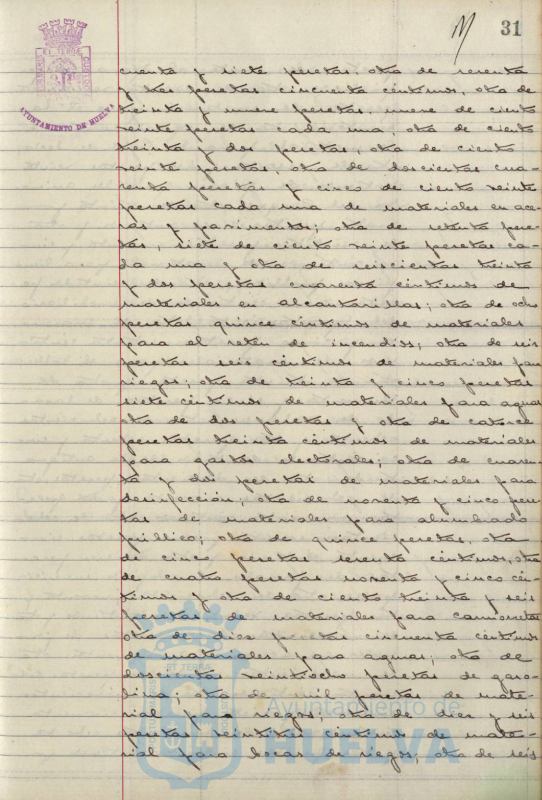 31
AYUNTAMIENTO DE HUELVA
cuenta y siete pesetas, otra de sesenta
y tres pesetas cincuenta céntimos, otra de
treinta y nueve pesetas, nueve de ciento
veinte pesetas cada una, otra de ciento
treinta y dos pesetas, otra de ciento
veinte pesetas, otra de doscientas cua-
renta pesetas y cinco de ciento veinte
pesetas cada una de materiales en ace-
ras y pavimentos; otra de setenta pese-
tas, siete de ciento veinte pesetas ca-
da una y otra de seiscientas treinta
y dos pesetas cuarenta céntimos de
materiales en alcantarillas; otra de ocho
pesetas quince céntimos de materiales
para el retén de incendios; otra de seis
pesetas seis céntimos de materiales para
riegos; otra de treinta y cinco pesetas
siete céntimos de materiales para aguas
otra de dos pesetas y otra de catorce
pesetas treinta céntimos de materiales
para gastos electorales; otra de cuaren-
ta y dos pesetas de materiales para
desinfección; otra de noventa y cinco pese-
tas de materiales para alumbrado
público; otra de quince pesetas, otra
de cinco pesetas sesenta céntimos, otra
de cuatro pesetas noventa y cinco cén-
timos y otra de ciento treinta y seis
pesetas de materiales para camionetas
otra de diez pesetas cincuenta céntimos
de materiales para aguas; otra de
doscientas veintiocho pesetas de gaso-
lina; otra de mil pesetas de mate-
rial para riegos; otra de diez y seis
pesetas céntimos de mate-
rial para bocas de riegos; otra de seis
Ayuntamiento de
HUELVA